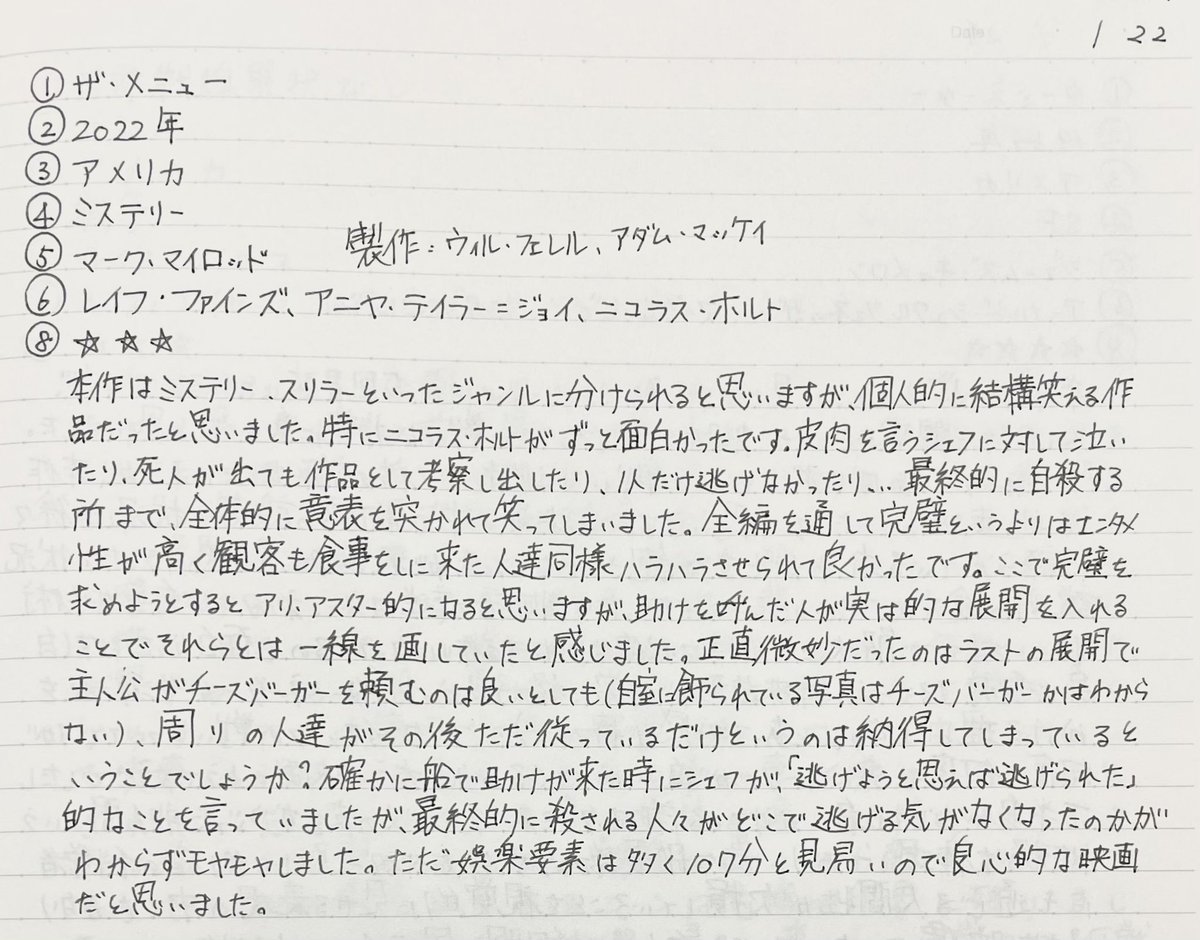 Date
1 22
① ザ・メニュー
② 2022年
③ アメリカ
④ ミステリー
⑤ マーク・マイロッド 製作：ウィル・フェレル、アダム・マッケイ
⑥ レイフ・ファインズ、アニヤ・テイラー＝ジョイ、ニコラス・ホルト
⑧ ☆☆☆
本作はミステリー、スリラーといったジャンルに分けられると思いますが、個人的に結構笑える作
品だったと思いました。特にニコラス・ホルトがずっと面白かったです。皮肉を言うシェフに対して泣い
たり、死人が出ても作品として考察し出したり、1人だけ逃げなかったり、、最終的に自殺する
所まで、全体的に意表を突かれて笑ってしまいました。全編を通して完璧というよりはエンタメ
性が高く観客も食事をしに来た人達同様ハラハラさせられて良かったです。ここで完璧を
求めようとするとアリ・アスター的になると思いますが、助けを呼んだ人が実は的な展開を入れる
ことでそれらとは一線を画していたと感じました。正直微妙だったのはラストの展開で
主人公がチーズバーガーを頼むのは良いとしても(自室に飾られている写真はチーズバーガーかはわから
ない)、周りの人達がその後ただ従っているだけというのは納得してしまっていると
いうことでしょうか？確かに船で助けが来た時にシェフが、「逃げようと思えば逃げられた」
的なことを言っていましたが、最終的に殺される人々がどこで逃げる気がなくなったのかが
わからずモヤモヤしました。ただ娯楽要素は多く107分と見易いので良心的な映画
だと思いました。